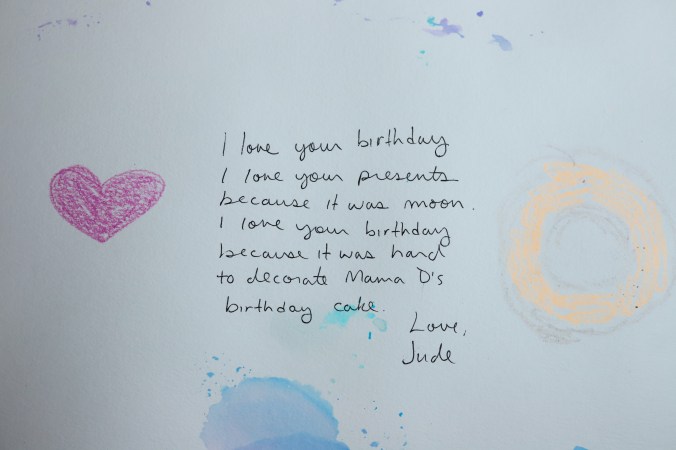 I love your birthday
I love your presents
because it was moon.
I love your birthday
because it was hard
to decorate Mama D's
birthday cake.
Love,
Jude